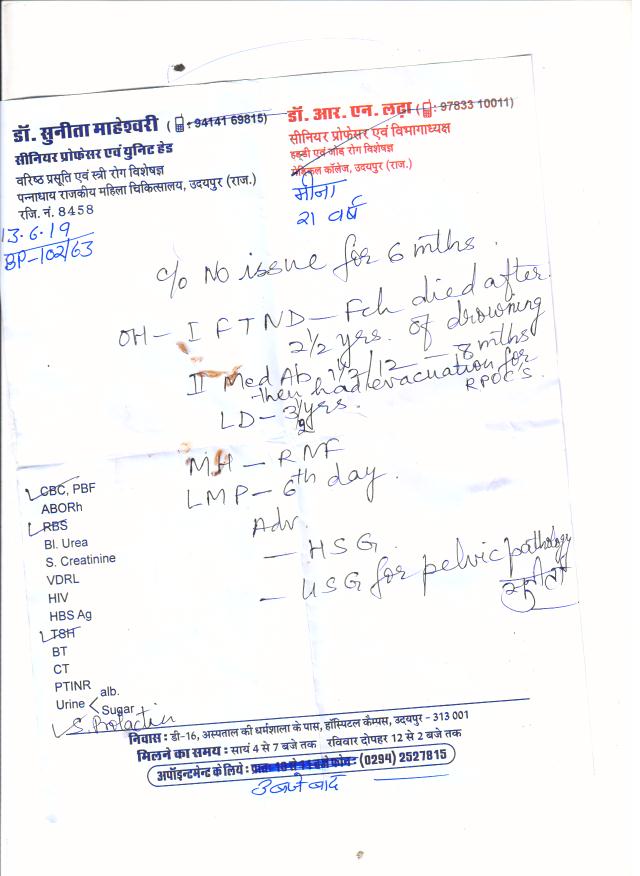 डॉ. सुनीता माहेश्वरी ( : 94141 69815)
सीनियर प्रोफेसर एवं युनिट हेड
वरिष्ठ प्रसूति एवं स्त्री रोग विशेषज्ञ
पन्नाधाय राजकीय महिला चिकित्सालय, उदयपुर (राज.)
रजि. नं. 8458
डॉ. आर. एन. लढ़ा ( : 97833 10011)
सीनियर प्रोफेसर एवं विभागाध्यक्ष
हड्डी एवं जोड़ रोग विशेषज्ञ
मेडिकल कॉलेज, उदयपुर (राज.)
मीना
२१ वर्ष
13.6.19
BP-102/63
c/o No issue for 6 mths.
OH - I FTND - Fch died after
2 1/2 yrs. of drowning
II Med Ab, 1 1/2/12 - 8 mths
then had evacuation for
RPOC's.
LD - 3 yrs.
MH - RNF
LMP - 6th day.
Adv.
- HSG.
- USG for pelvic pathology
सुनीता
CBC, PBF
ABORh
RBS
Bl. Urea
S. Creatinine
VDRL
HIV
HBS Ag
TSH
BT
CT
PTINR
Urine < alb. Sugar
S. Prolactin
निवास : डी-16, अस्पताल की धर्मशाला के पास, हॉस्पिटल कैम्पस, उदयपुर - 313 001
मिलने का समय : सायं 4 से 7 बजे तक रविवार दोपहर 12 से 2 बजे तक
अपॉइन्टमेन्ट के लिये : (0294) 2527815
3 बजे बाद